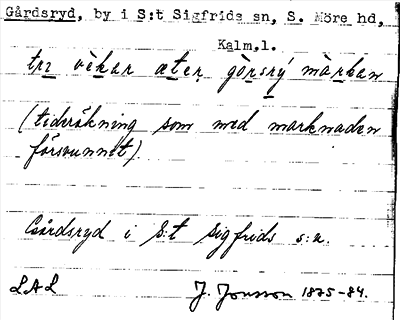 Gårdsryd, by i S:t Sigfrids sn, S. Möre hd,
Kalm.l.
trɪ vèkar æter gòrsrý màrkan
(tideräkning som med marknaden
försvunnit).
Gårdsryd i S:t Sigfrids s:n.
LAL J. Jonsson 1875-84.